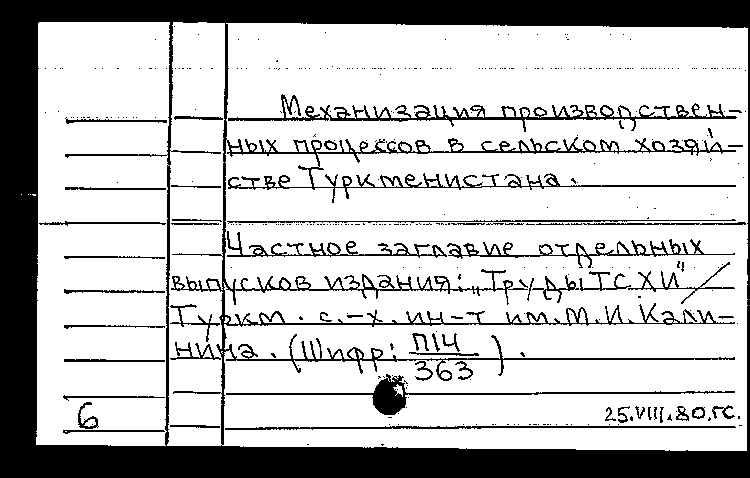 Механизация производствен-
ных процессов в сельском хозяй-
стве Туркменистана.
Частное заглавие отдельных
выпусков издания: „Труды ТСХИ" /
Туркм. с.-х. ин-т им. М.И. Кали-
нина. (Шифр: П14/363).
6
25.VIII.80.ГС.